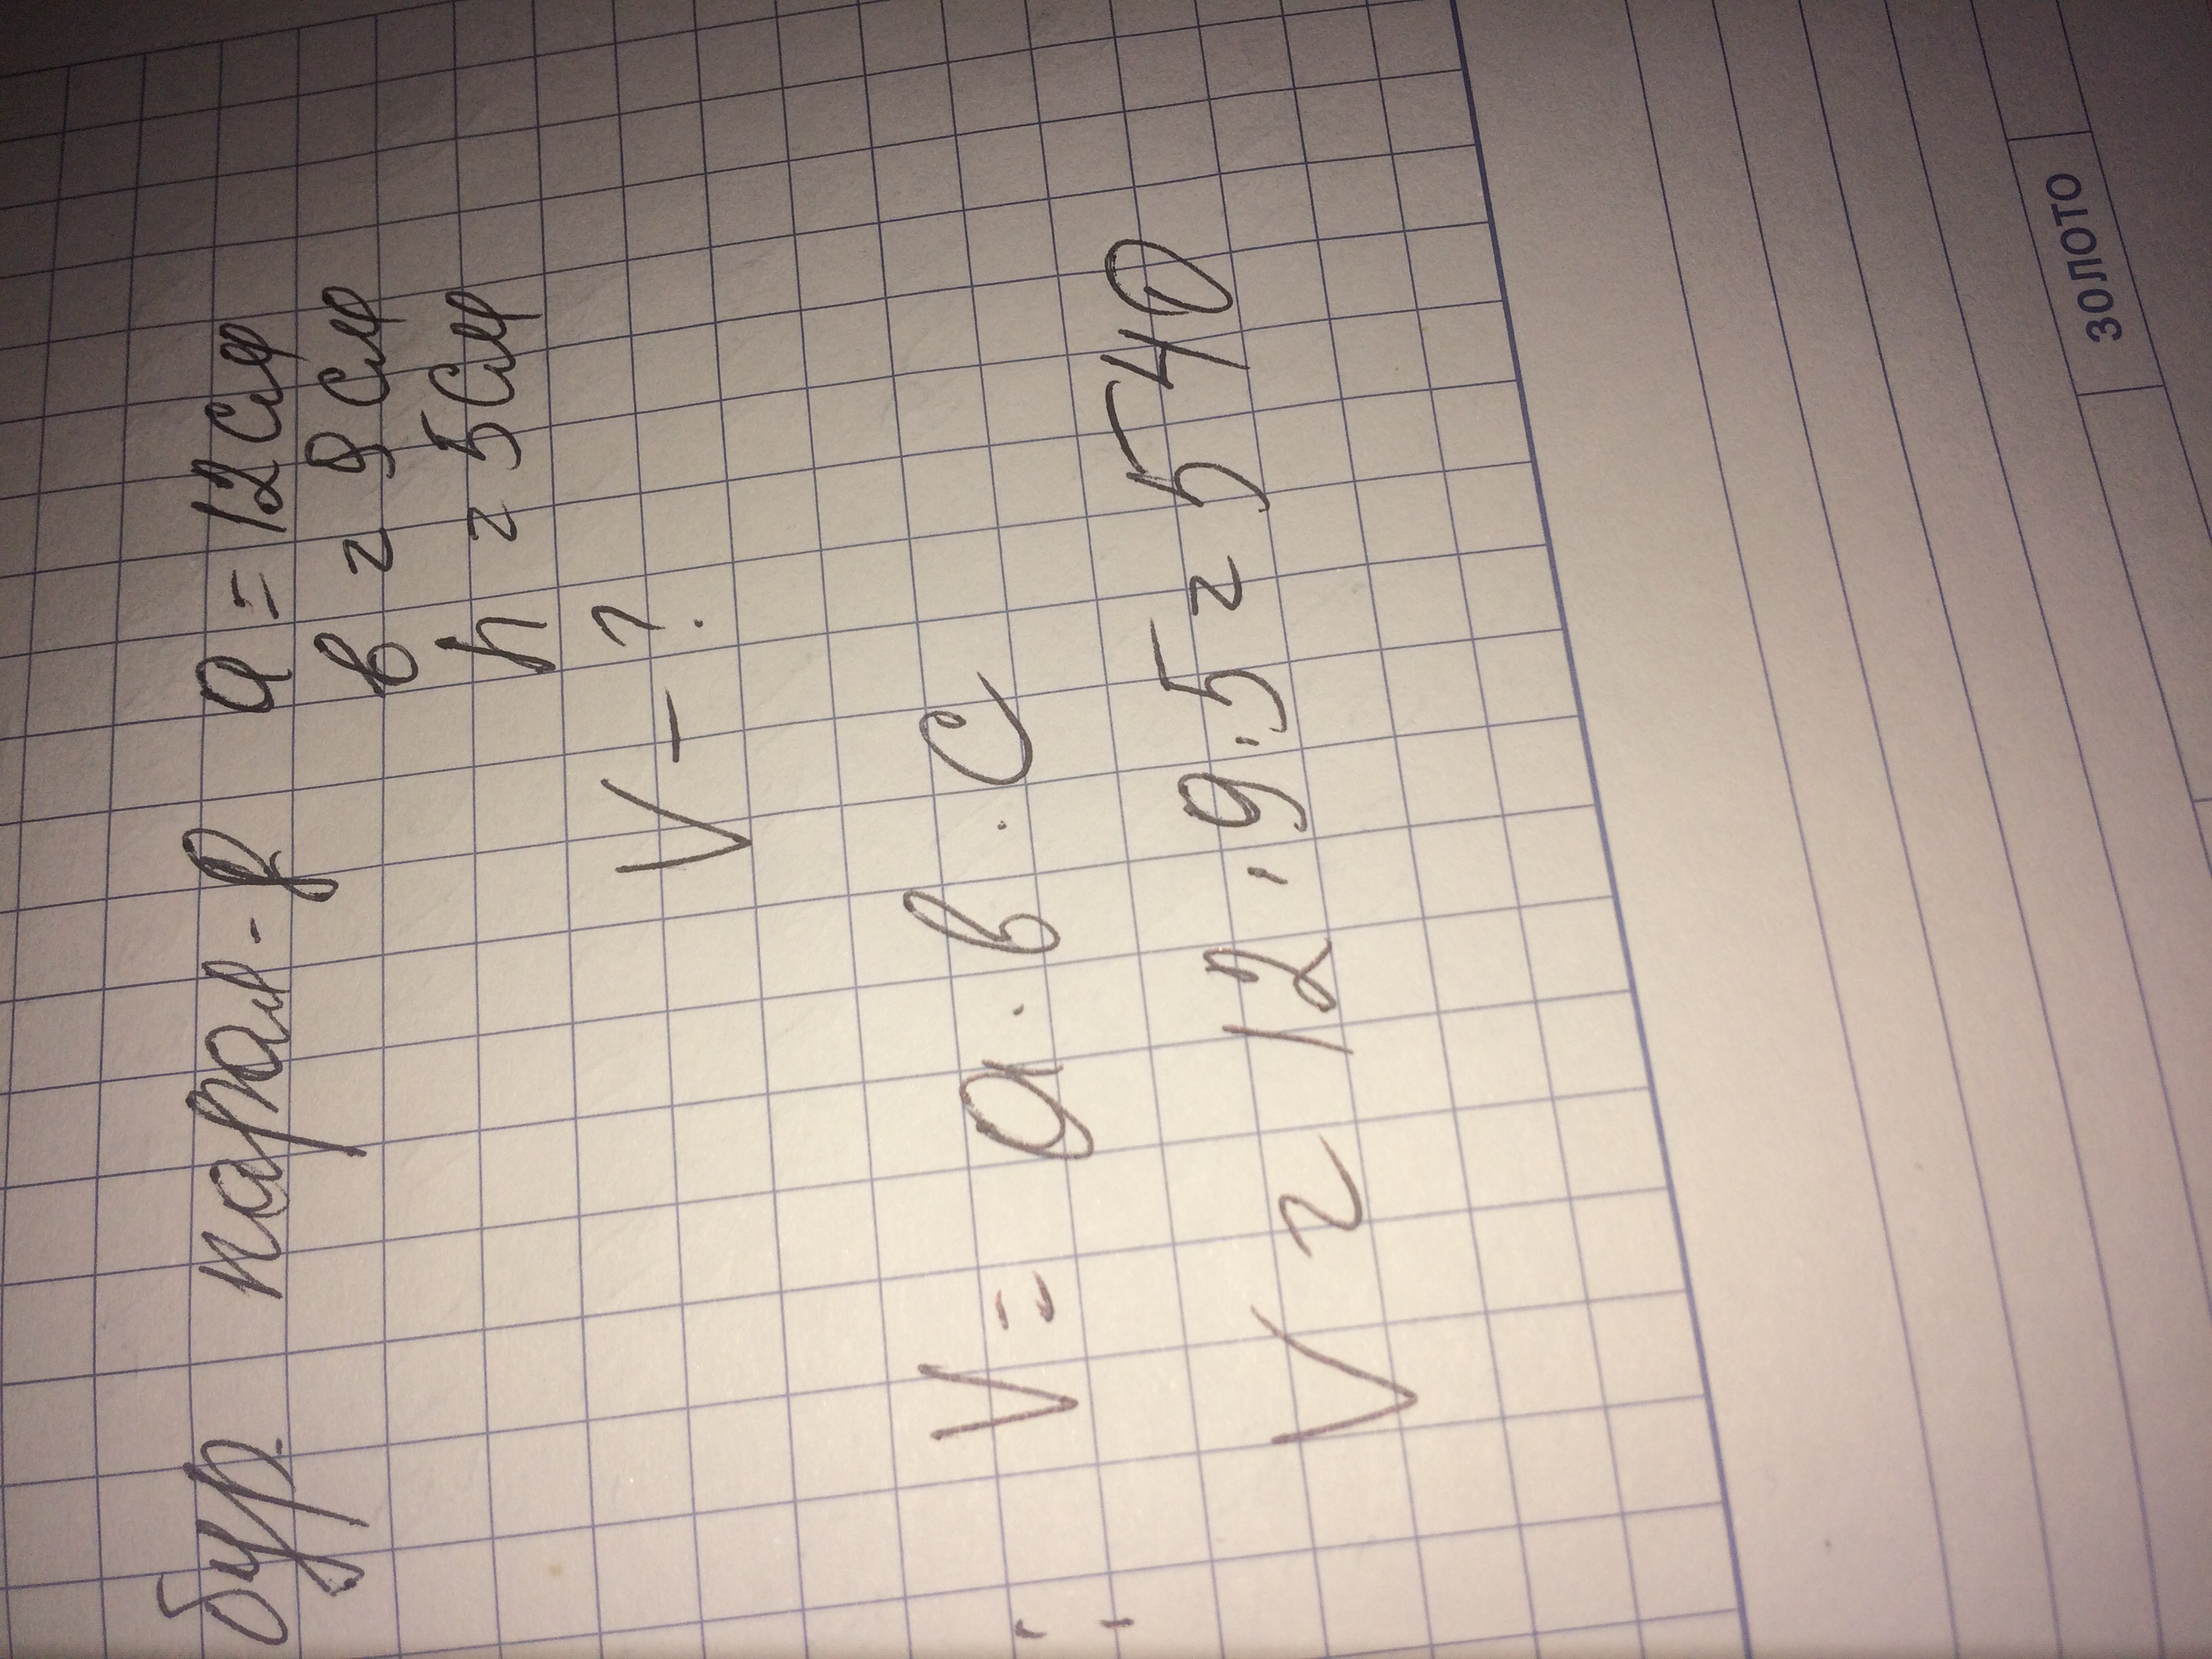 бур парал-в а = 12 см
в = 9 см
h = 5 см
V - ?
: V = а · в · с
V = 12 · 9 · 5 = 540
ЗОЛОТО